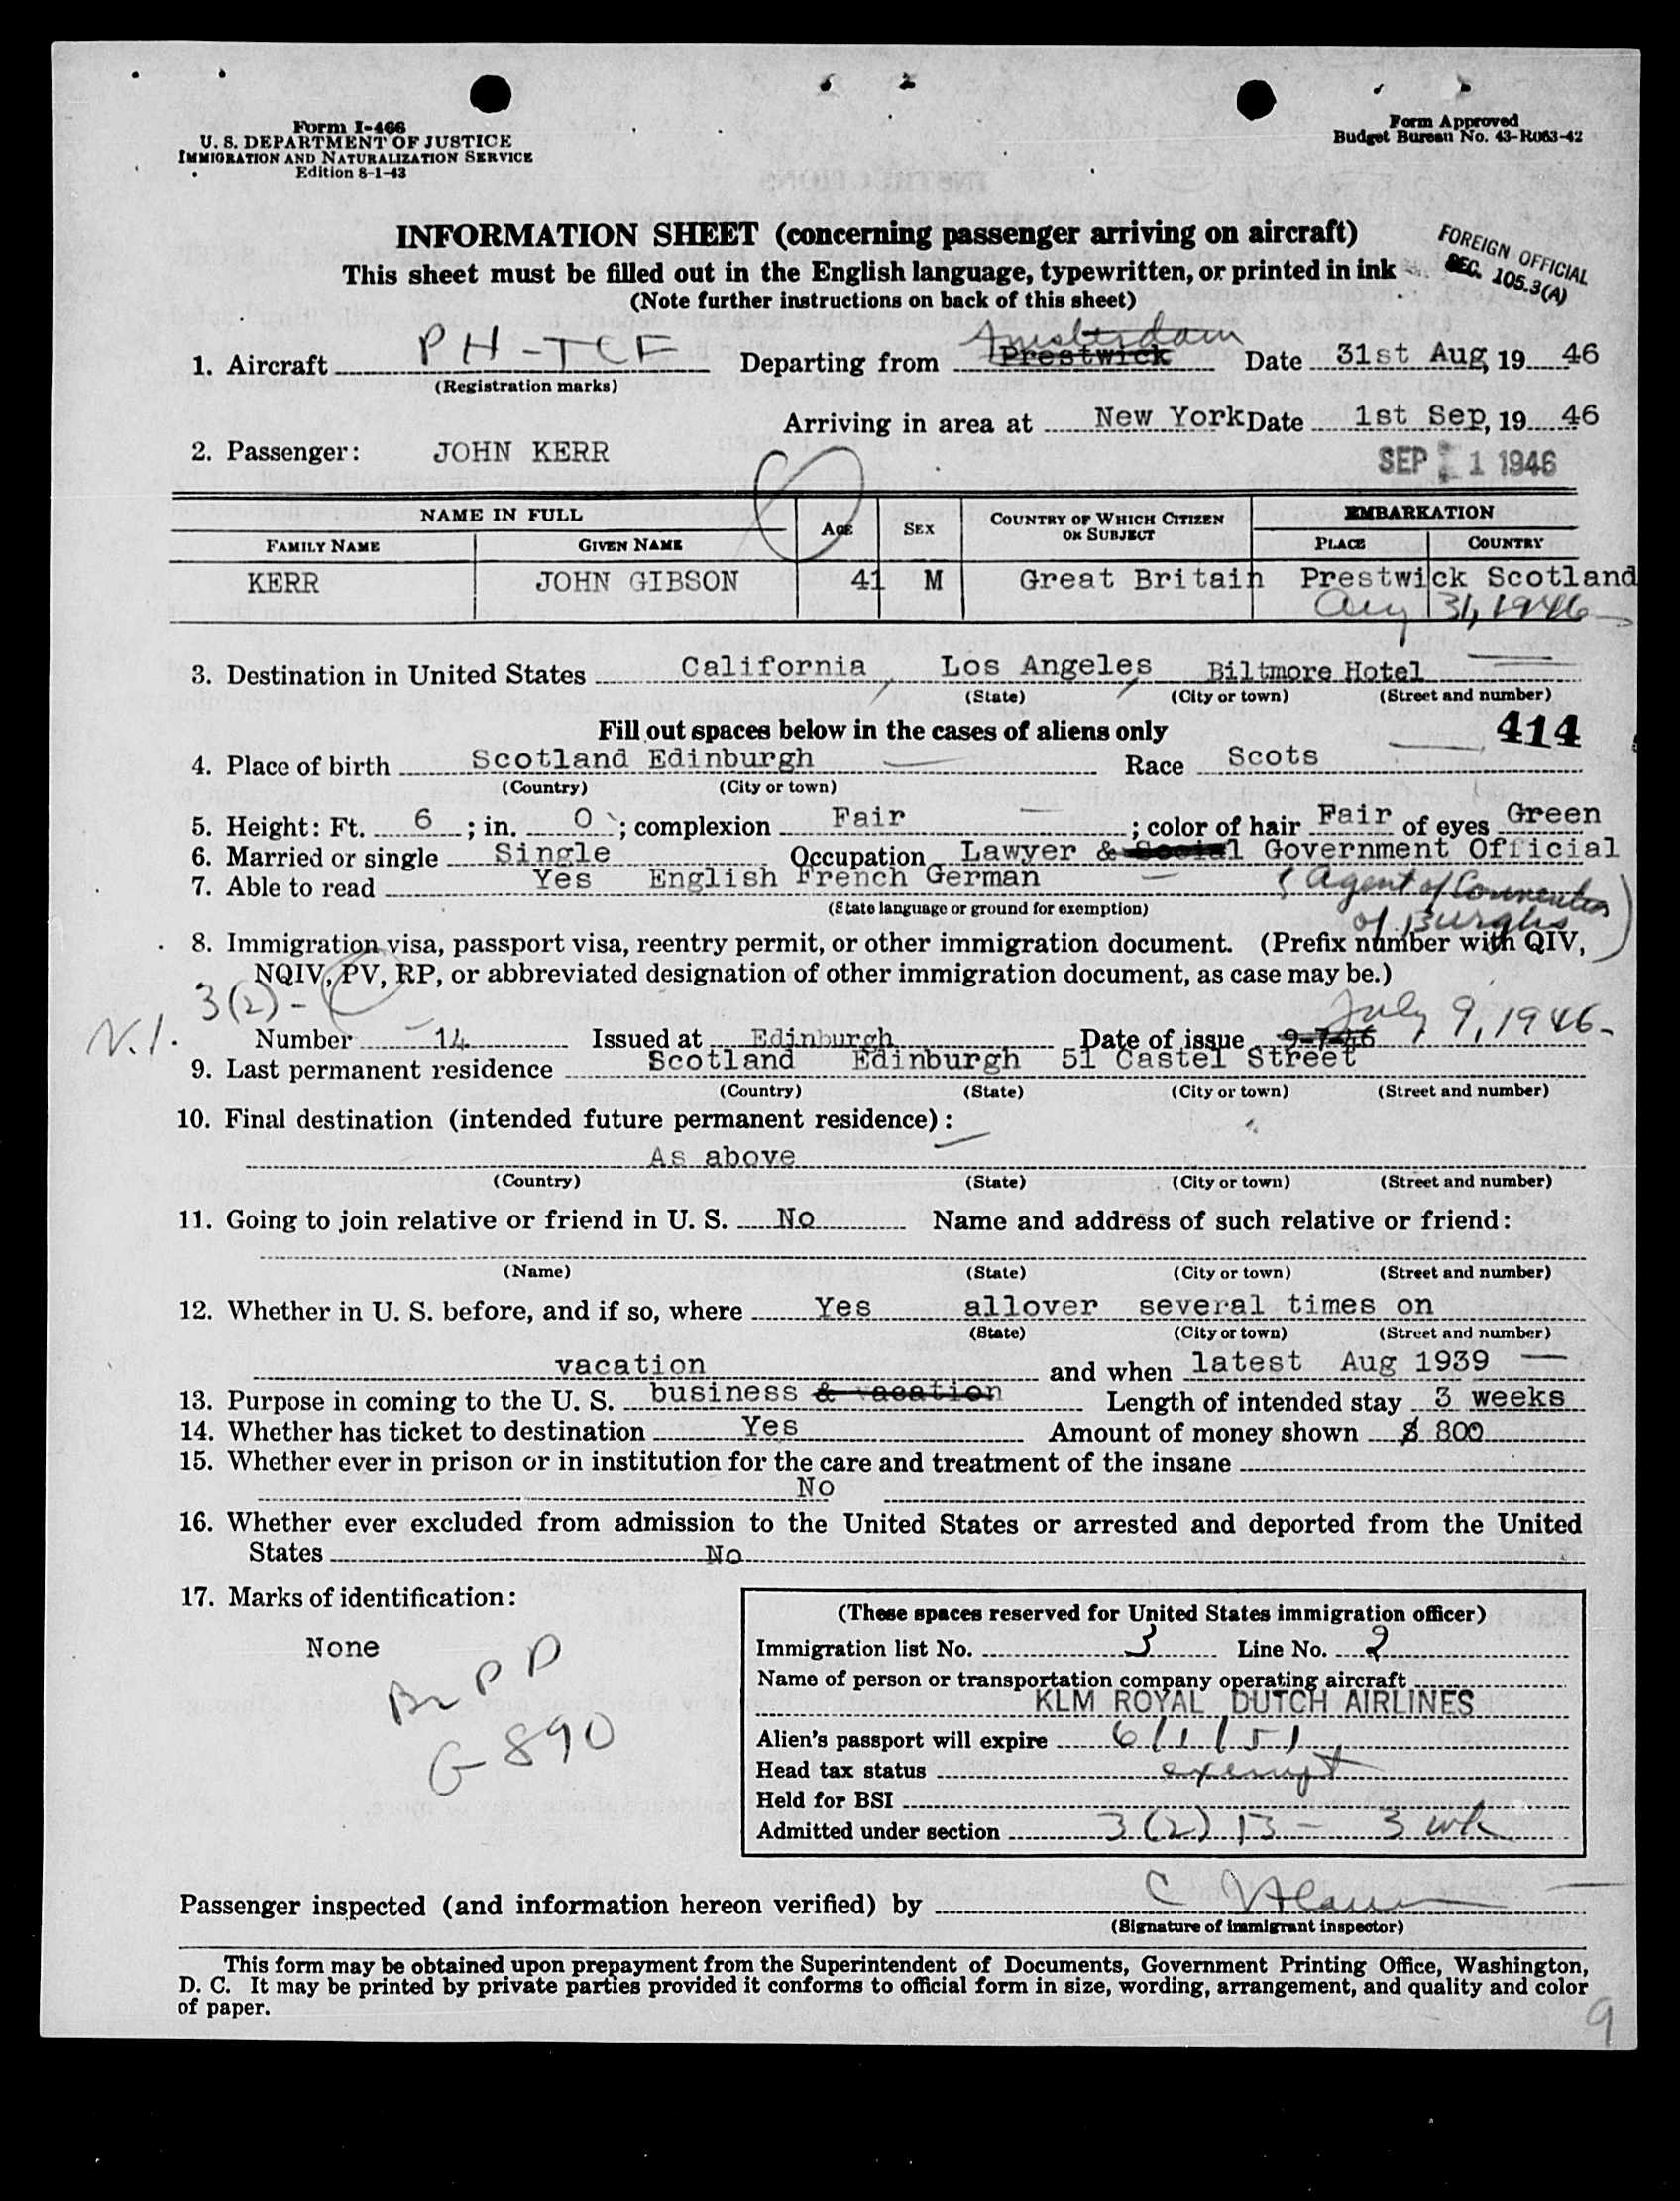 Form I-466
U. S. DEPARTMENT OF JUSTICE
IMMIGRATION AND NATURALIZATION SERVICE
Edition 8-1-43
Form Approved
Budget Bureau No. 43-R063-42
INFORMATION SHEET (concerning passenger arriving on aircraft)
This sheet must be filled out in the English language, typewritten, or printed in ink
(Note further instructions on back of this sheet)
FOREIGN OFFICIAL
SEC. 105.3(A)
Amsterdam
1. Aircraft PH-TCF Departing from Prestwick Date 31st Aug, 19 46
(Registration marks)
Arriving in area at New York Date 1st Sep, 19 46
2. Passenger: JOHN KERR
SEP 1 1946
NAME IN FULL AGE SEX COUNTRY OF WHICH CITIZEN OR SUBJECT EMBARKATION
FAMILY NAME GIVEN NAME PLACE COUNTRY
KERR JOHN GIBSON 41 M Great Britain Prestwick Scotland
Aug 31, 1946
3. Destination in United States California Los Angeles Biltmore Hotel
(State) (City or town) (Street and number)
Fill out spaces below in the cases of aliens only
414
4. Place of birth Scotland Edinburgh Race Scots
(Country) (City or town)
5. Height: Ft. 6 ; in. 0 ; complexion Fair ; color of hair Fair of eyes Green
6. Married or single Single Occupation Lawyer & Social Government Official
7. Able to read Yes English French German (Agent of Convention
(State language or ground for exemption)
of Burghs)
8. Immigration visa, passport visa, reentry permit, or other immigration document. (Prefix number with QIV,
NQIV, PV, RP, or abbreviated designation of other immigration document, as case may be.)
3(2)-
N.I. Number 14 Issued at Edinburgh Date of issue 9-7-46 July 9, 1946-
9. Last permanent residence Scotland Edinburgh 51 Castel Street
(Country) (State) (City or town) (Street and number)
10. Final destination (intended future permanent residence):
As above
(Country) (State) (City or town) (Street and number)
11. Going to join relative or friend in U. S. No Name and address of such relative or friend:
(Name) (State) (City or town) (Street and number)
12. Whether in U. S. before, and if so, where Yes allover several times on
(State) (City or town) (Street and number)
vacation and when latest Aug 1939
13. Purpose in coming to the U. S. business & vacation Length of intended stay 3 weeks
14. Whether has ticket to destination Yes Amount of money shown $ 800
15. Whether ever in prison or in institution for the care and treatment of the insane
No
16. Whether ever excluded from admission to the United States or arrested and deported from the United
States No
17. Marks of identification:
None
PD
G-890
(These spaces reserved for United States immigration officer)
Immigration list No. 3 Line No. 2
Name of person or transportation company operating aircraft
KLM ROYAL DUTCH AIRLINES
Alien's passport will expire 6/1/51
Head tax status exempt
Held for BSI
Admitted under section 3(2) 13 - 3 wk
Passenger inspected (and information hereon verified) by C
(Signature of immigrant inspector)
This form may be obtained upon prepayment from the Superintendent of Documents, Government Printing Office, Washington,
D. C. It may be printed by private parties provided it conforms to official form in size, wording, arrangement, and quality and color
of paper.
9